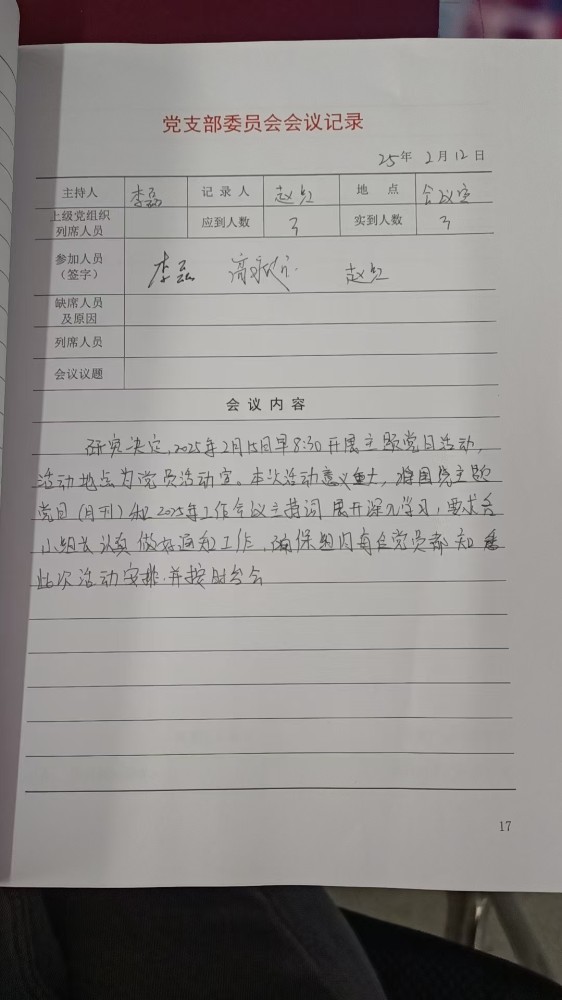 党支部委员会会议记录
25年 2月12日
主持人 李磊 记录人 赵红 地点 会议室
上级党组织列席人员 应到人数 3 实到人数 3
参加人员（签字） 李磊 赵红
缺席人员及原因
列席人员
会议议题
会议内容
研究决定，2025年2月15日早8:30开展主题党日活动，
活动地点为党员活动室。本次活动意义重大，将围绕主题
党日（月刊）和2025年工作会议主持词展开深入学习，要求各
小组长认真做好通知工作，确保组内每位党员都知悉
此次活动安排，并按时参会
17